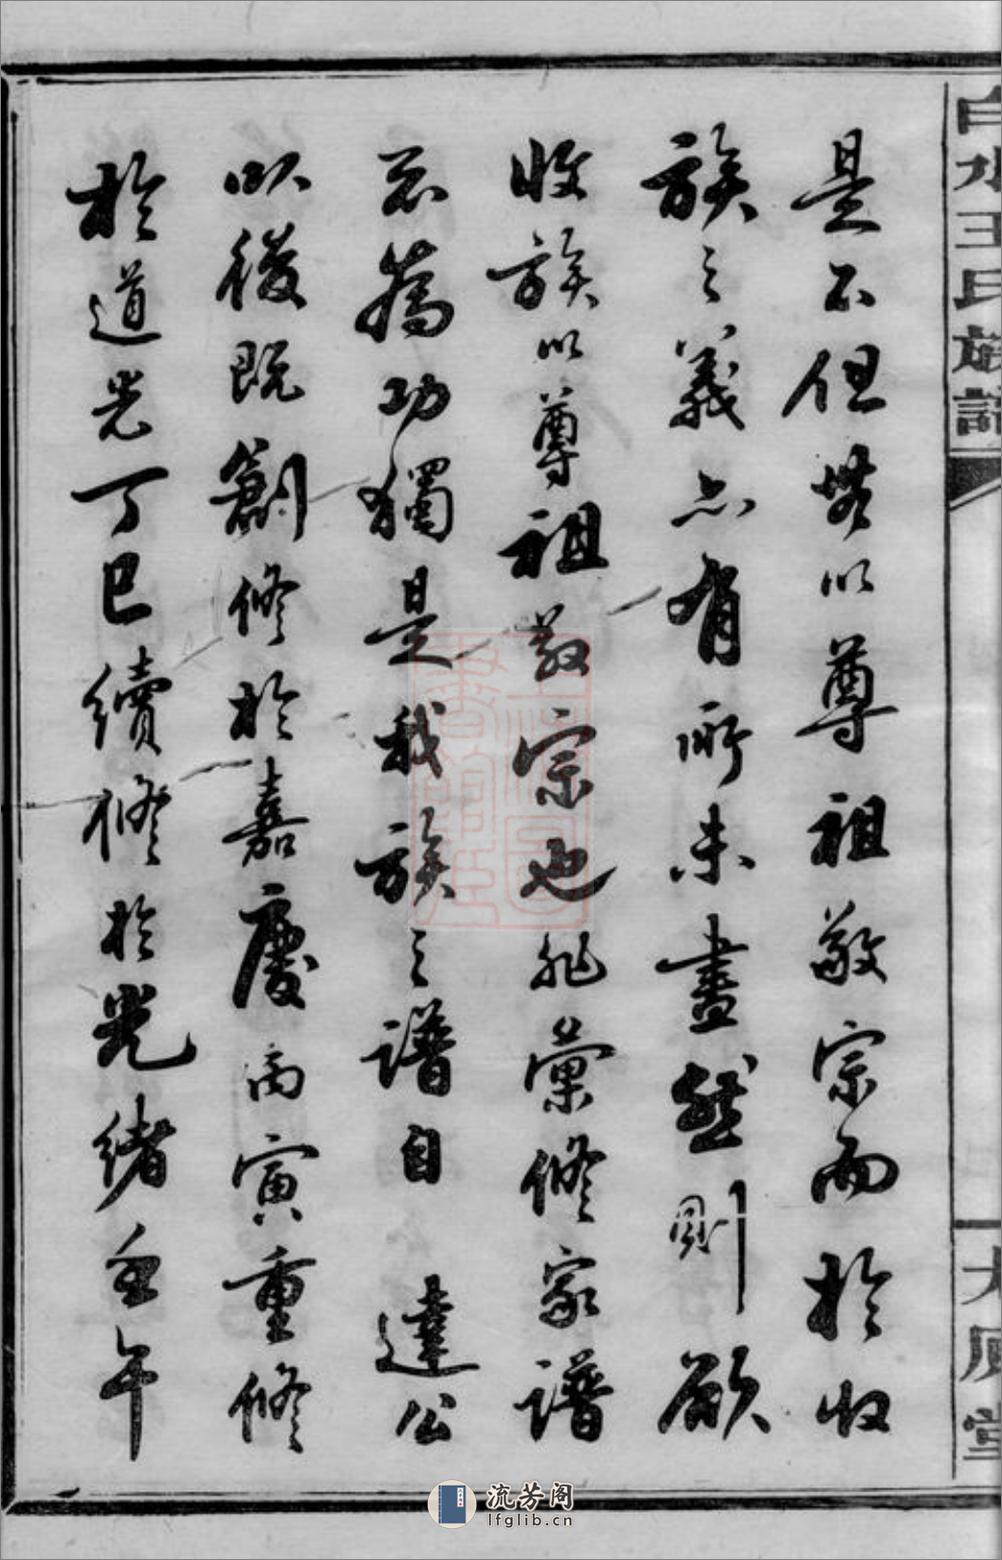 白水王氏族譜
大原堂
是不但無以尊祖敬宗而於收
族之義亦有所未盡然則願
收族以尊祖敬宗也非彙修家譜
不為功獨是我族之譜自 達公
以後既創修於嘉慶丙寅重修
於道光丁巳續修於光緒壬午
流芳阁
lfglib.cn